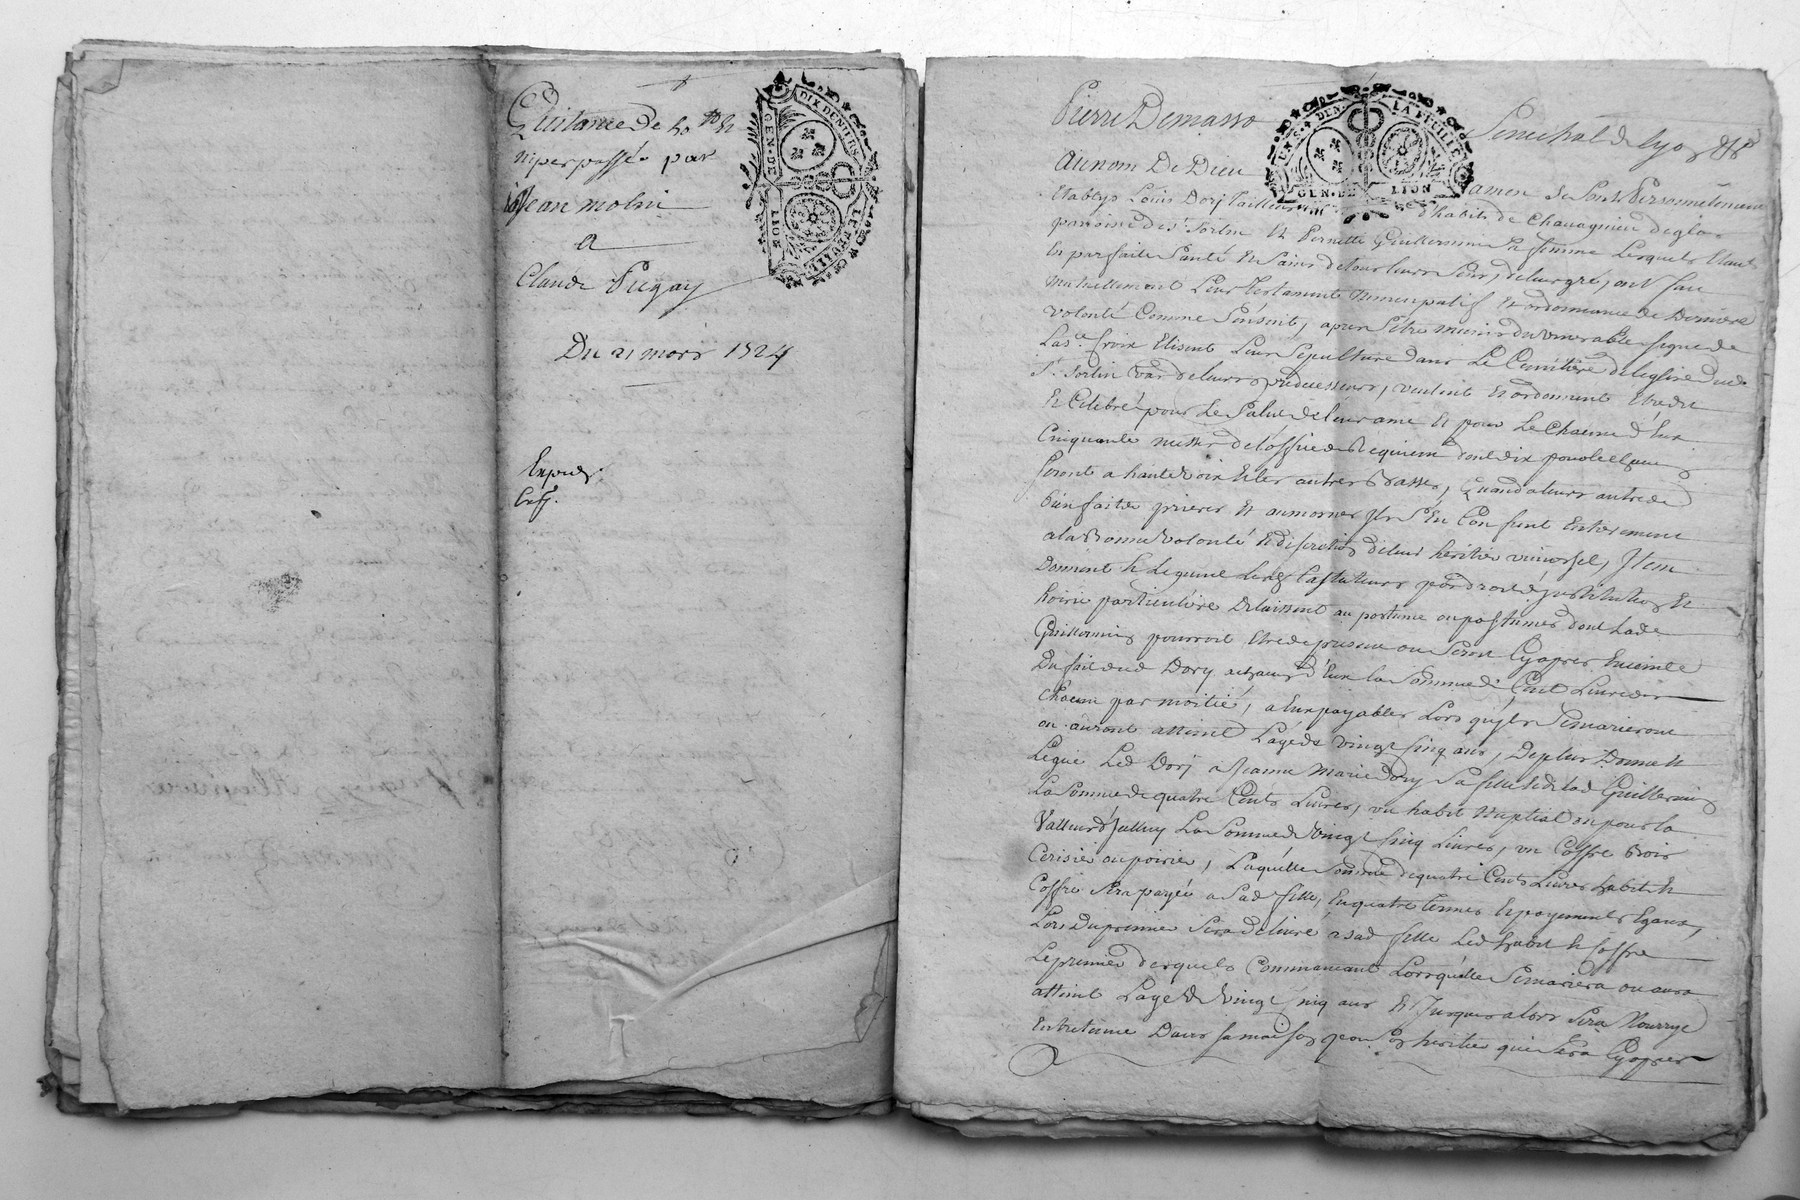 Quitance de 50 ₶ &
n'i per passée par
Jean molin
a
Claude Pugay
Du 21 mars 1724
Exped
Crtf.
DIX DENIERS LE FEUILLE
GEN. DE LION
Pierre Demasso
Senechal de Lyon &c
DEN. LA FEUILLE
GEN. DE LION
Au nom De Dieu amen Se sont Personnellement
Etablys Louis Dorj Tailleur d'habits de Chavagnieu
paroisse de St Sorlin Et Pernette Guillermin Sa femme Lesquels Etants
En parfaite Santé Et Sains de tous leurs Sens, de leur gré, ont fait
mutuellement Leur Testament Nuncupatif Et ordonnance de Derniere
volonté Comme S'ensuit, apres s'etre munis du venerable signe de
La Ste Croix Elisent Leur Sepulture dans Le Cimitiere de leglise dud.
St Sorlin de leurs predecesseurs, veulent Et ordonnent Etre dit
Et Celebré pour Le Salut de leur ame Et pour Le Chacun d'Eux
Cinquante messes de l'office de Requiem dont dix
Seront a haute voix Et les autres Basses, Quand a leurs autres
Bienfaits prieres Et aumosnes Jls S'En Confient Entierement
a la Bonne volonté Et discretion de leur heritier universel, Jtem
Donnent Et Leguent Lesd. Testateurs par droit d'Jnstitution Et
hoirie particuliere Delaissent au postume ou postumes dont Lade
Guillermin pourroit Etre de present ou Seroit Cyapres Enceinte
Du fait dud Dorj a chacun d'Eux la Somme de Cent Livres
Chacun par moitié, a Eux payables Lors qu'jls Se marieront
ou auront atteint L'age de vingt Cinq ans, De plus Donne Et
Legue Led Dorj a Jeanne Marie Dorj Sa fille Et de lad Guillermin
La Somme de quatre Cents Livres, un habit Nuptial ou pour la
Valleur d'Jcelluy La Somme de Vingt Cinq Livres, un Coffre Bois
Cerisier ou poirier, Laquelle Somme de quatre Cents Livres habit Et
Coffre Sera payée a Sad fille, En quatre termes Et payements Egaux,
Lors Du premier Sera delivré a sad fille Led habit Et Coffre
Le premier desquels Commancant Lorsquelle Se mariera ou aura
atteint Lage De Vingt cinq ans Et Jusques alors Sera Nourrye
Entretenue Dans Sa maison par Son heritier qui Sera Cyapres